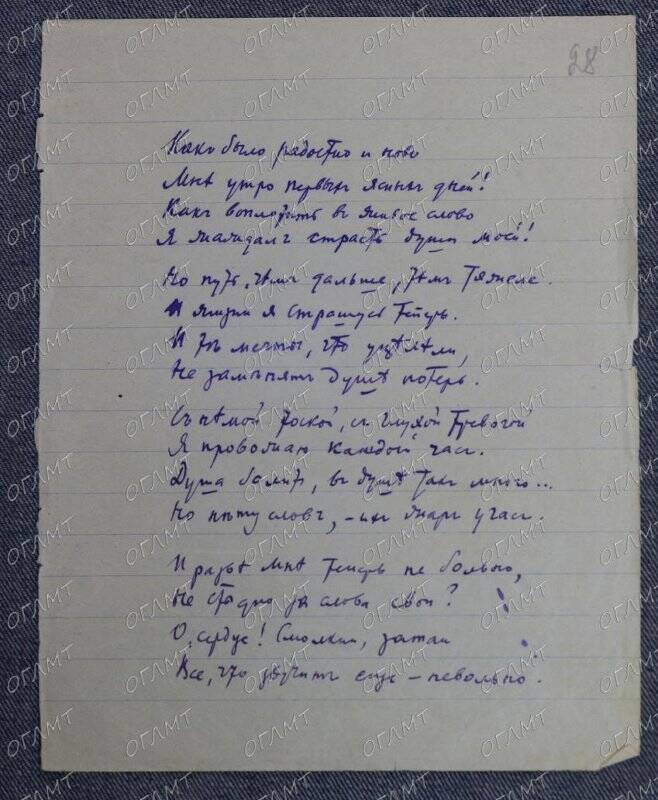 28
Какъ было радостно и ново
Мнѣ утро первыхъ ясныхъ дней!
Какъ воплотить въ живое слово
Я жаждалъ страсть души моей!
Но путь, чѣмъ дальше, тѣмъ тяжеле.
И жизни я страшусь теперь.
И тѣ мечты, что уцѣлѣли,
Не замѣнятъ душѣ потерь.
Съ нѣмой тоской, съ глухой тревогой
Я провожаю каждой часъ.
Душа болитъ, въ душѣ такъ много...
Но нѣту словъ, – ихъ жаръ угасъ.
И развѣ мнѣ теперь не больно,
Не стыдно за слова свои?
О, сердце! Смолкни, затаи
Все, что звучитъ еще – невольно.
ОГЛМТ